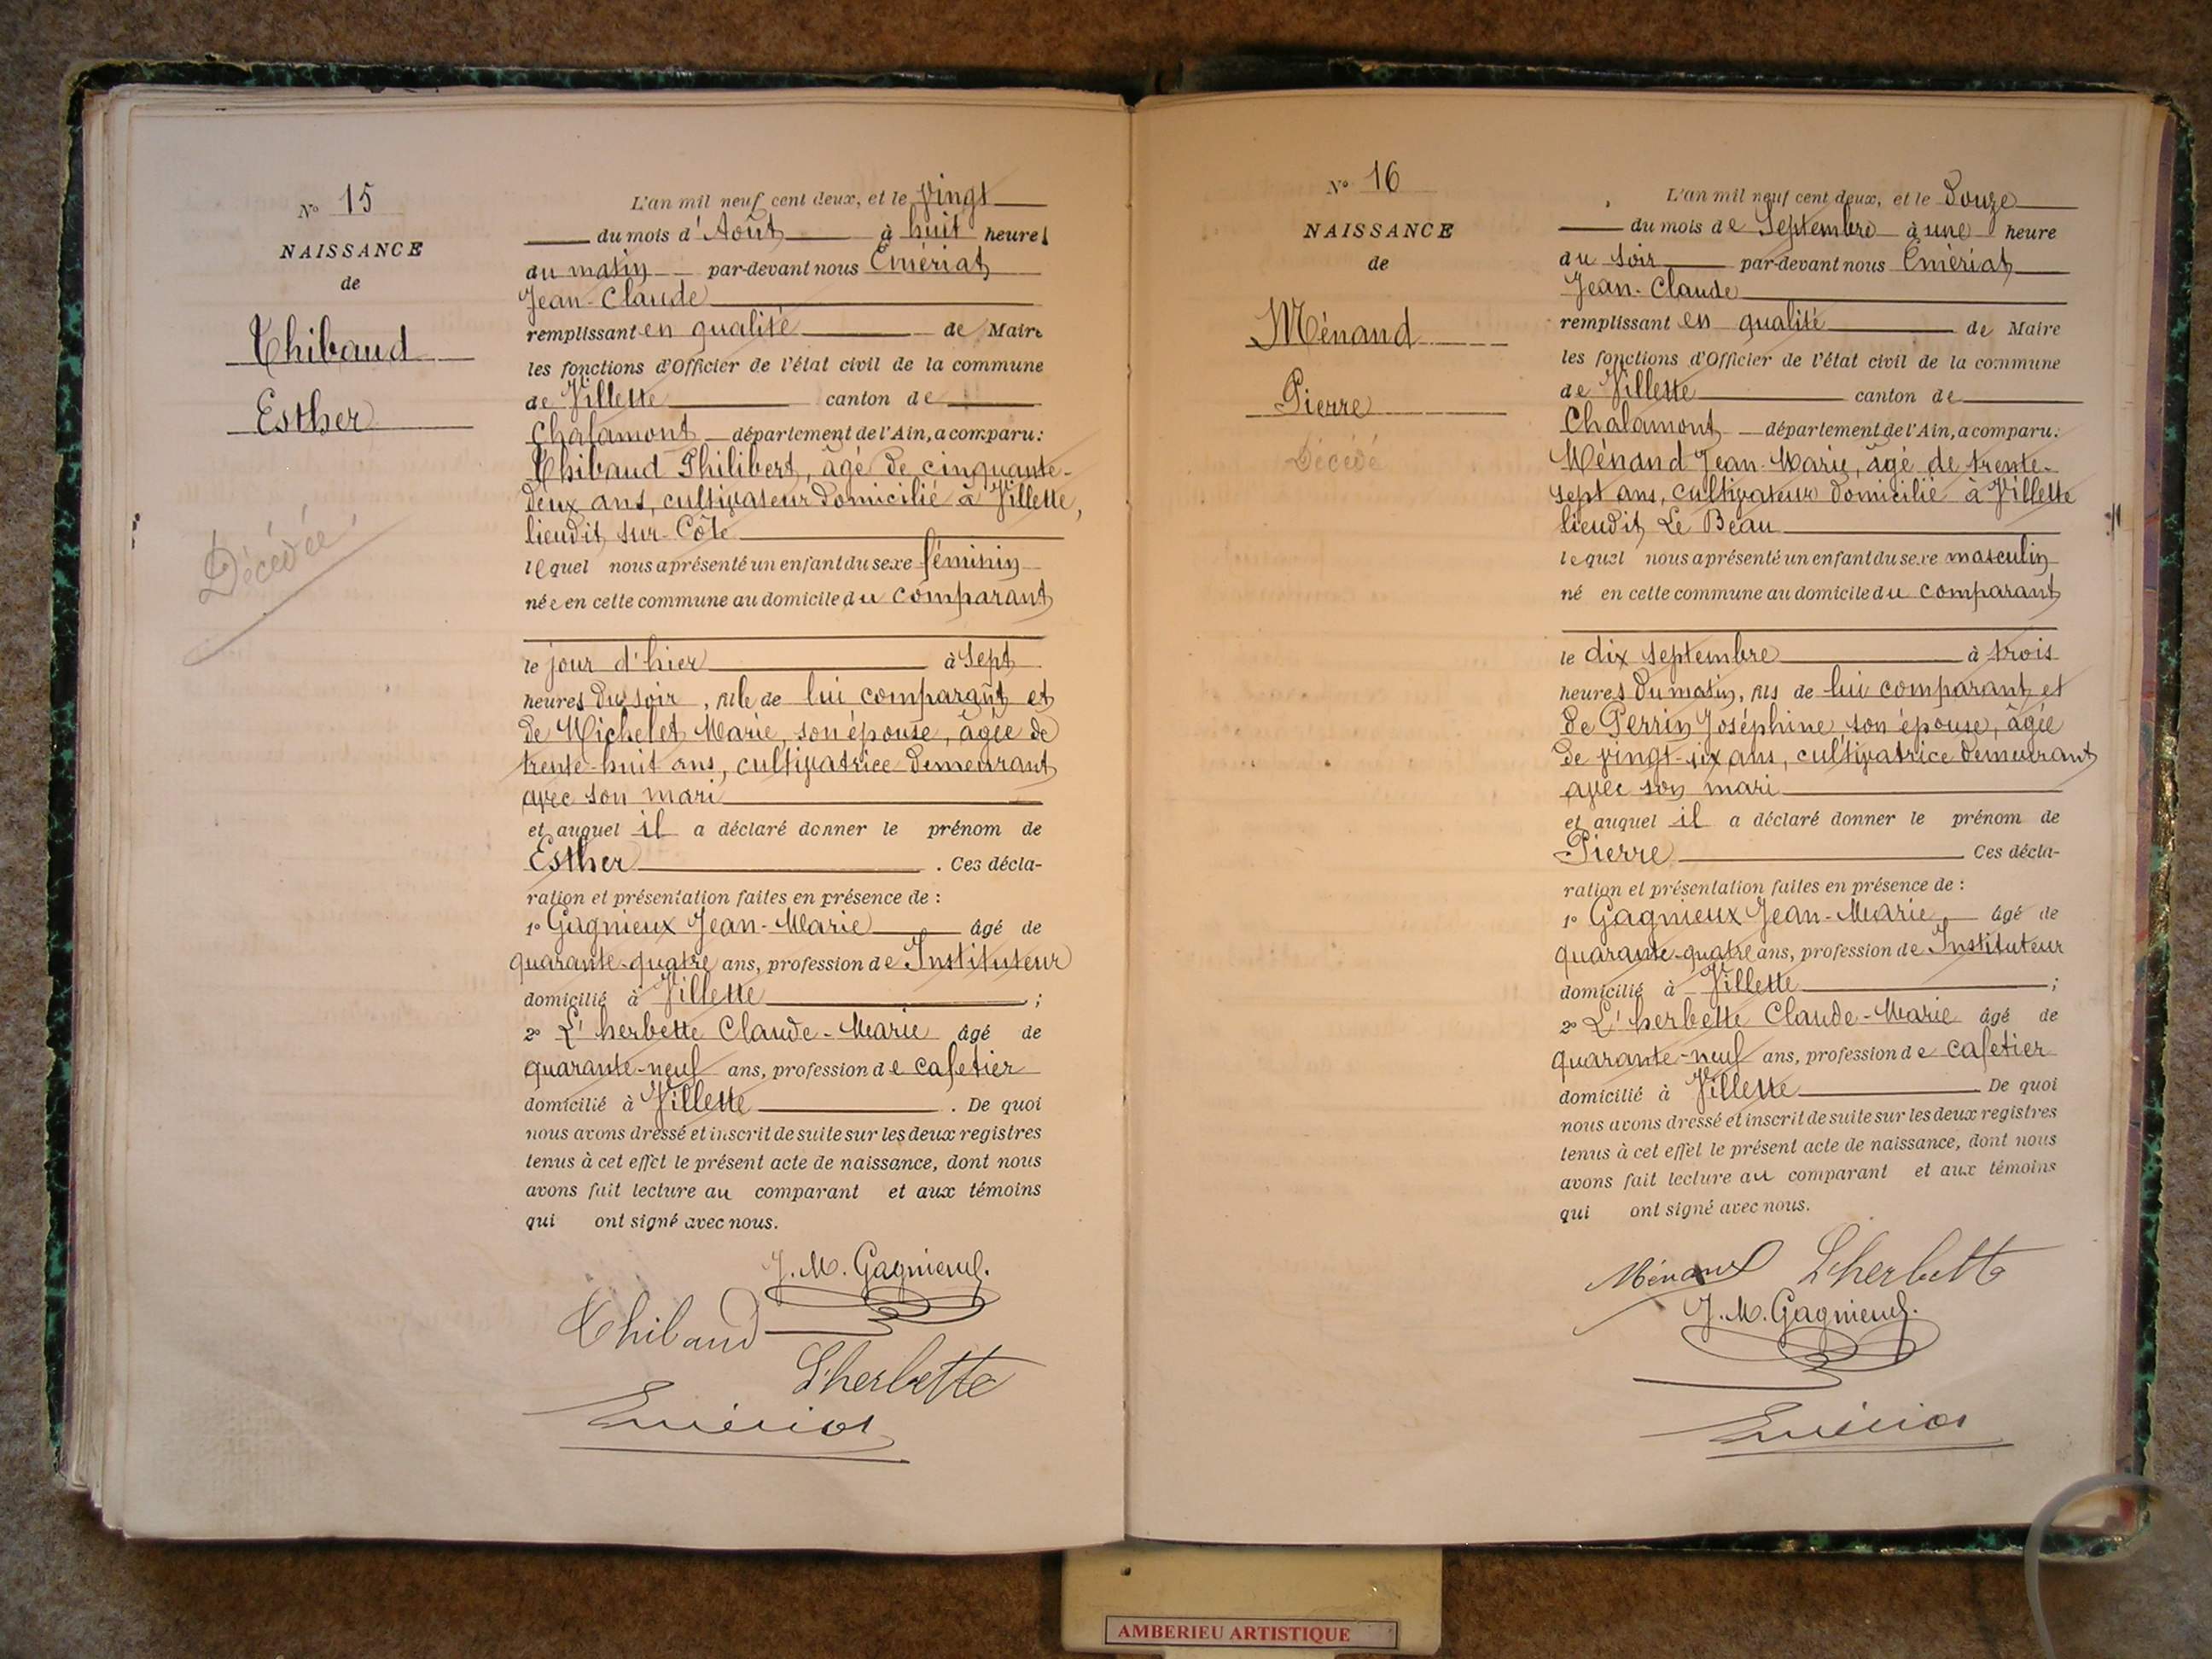 Nº 15
NAISSANCE
de
Thibaud
Esther
Décédée
L'an mil neuf cent deux, et le vingt
du mois d'Août à huit heures
du matin par-devant nous Emériat
Jean-Claude
remplissant en qualité de Maire
les fonctions d'Officier de l'état civil de la commune
de Villette canton de
Chalamont département de l'Ain, a comparu:
Thibaud Philibert, âgé de cinquante-
deux ans, cultivateur domicilié à Villette,
lieudit sur-Côte
lequel nous a présenté un enfant du sexe féminin
née en cette commune au domicile du comparant
le jour d'hier à sept
heures du soir, fille de lui comparant et
de Michelet Marie, son épouse, âgée de
trente-huit ans, cultivatrice demeurant
avec son mari
et auquel il a déclaré donner le prénom de
Esther. Ces décla-
ration et présentation faites en présence de :
1º Gagnieux Jean-Marie âgé de
quarante-quatre ans, profession de Instituteur
domicilié à Villette ;
2º L'herbette Claude-Marie âgé de
quarante-neuf ans, profession de cafetier
domicilié à Villette. De quoi
nous avons dressé et inscrit de suite sur les deux registres
tenus à cet effet le présent acte de naissance, dont nous
avons fait lecture au comparant et aux témoins
qui ont signé avec nous.
J. M. Gagnieux.
Thibaud
Lherbette
Emériat
Nº 16
NAISSANCE
de
Ménand
Pierre
Décédé
L'an mil neuf cent deux, et le Douze
du mois de Septembre à une heure
du soir par-devant nous Emériat
Jean-Claude
remplissant en qualité de Maire
les fonctions d'Officier de l'état civil de la commune
de Villette canton de
Chalamont département de l'Ain, a comparu:
Ménand Jean-Marie, âgé de trente-
sept ans, cultivateur domicilié à Villette
lieudit Le Beau
lequel nous a présenté un enfant du sexe masculin
né en cette commune au domicile du comparant
le dix septembre à trois
heures du matin, fils de lui comparant et
de Perrin Joséphine, son épouse, âgée
de vingt-six ans, cultivatrice demeurant
avec son mari
et auquel il a déclaré donner le prénom de
Pierre Ces décla-
ration et présentation faites en présence de :
1º Gagnieux Jean-Marie, âgé de
quarante-quatre ans, profession de Instituteur
domicilié à Villette ;
2º L'herbette Claude-Marie âgé de
quarante-neuf ans, profession de cafetier
domicilié à Villette De quoi
nous avons dressé et inscrit de suite sur les deux registres
tenus à cet effet le présent acte de naissance, dont nous
avons fait lecture au comparant et aux témoins
qui ont signé avec nous.
Ménand Lherbette
J. M. Gagnieux.
Emériat
AMBERIEU ARTISTIQUE